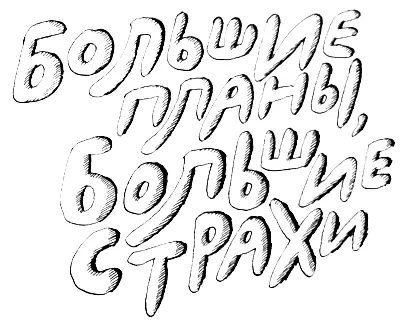 БОЛЬШИЕ
ПЛАНЫ,
БОЛЬШИЕ
СТРАХИ